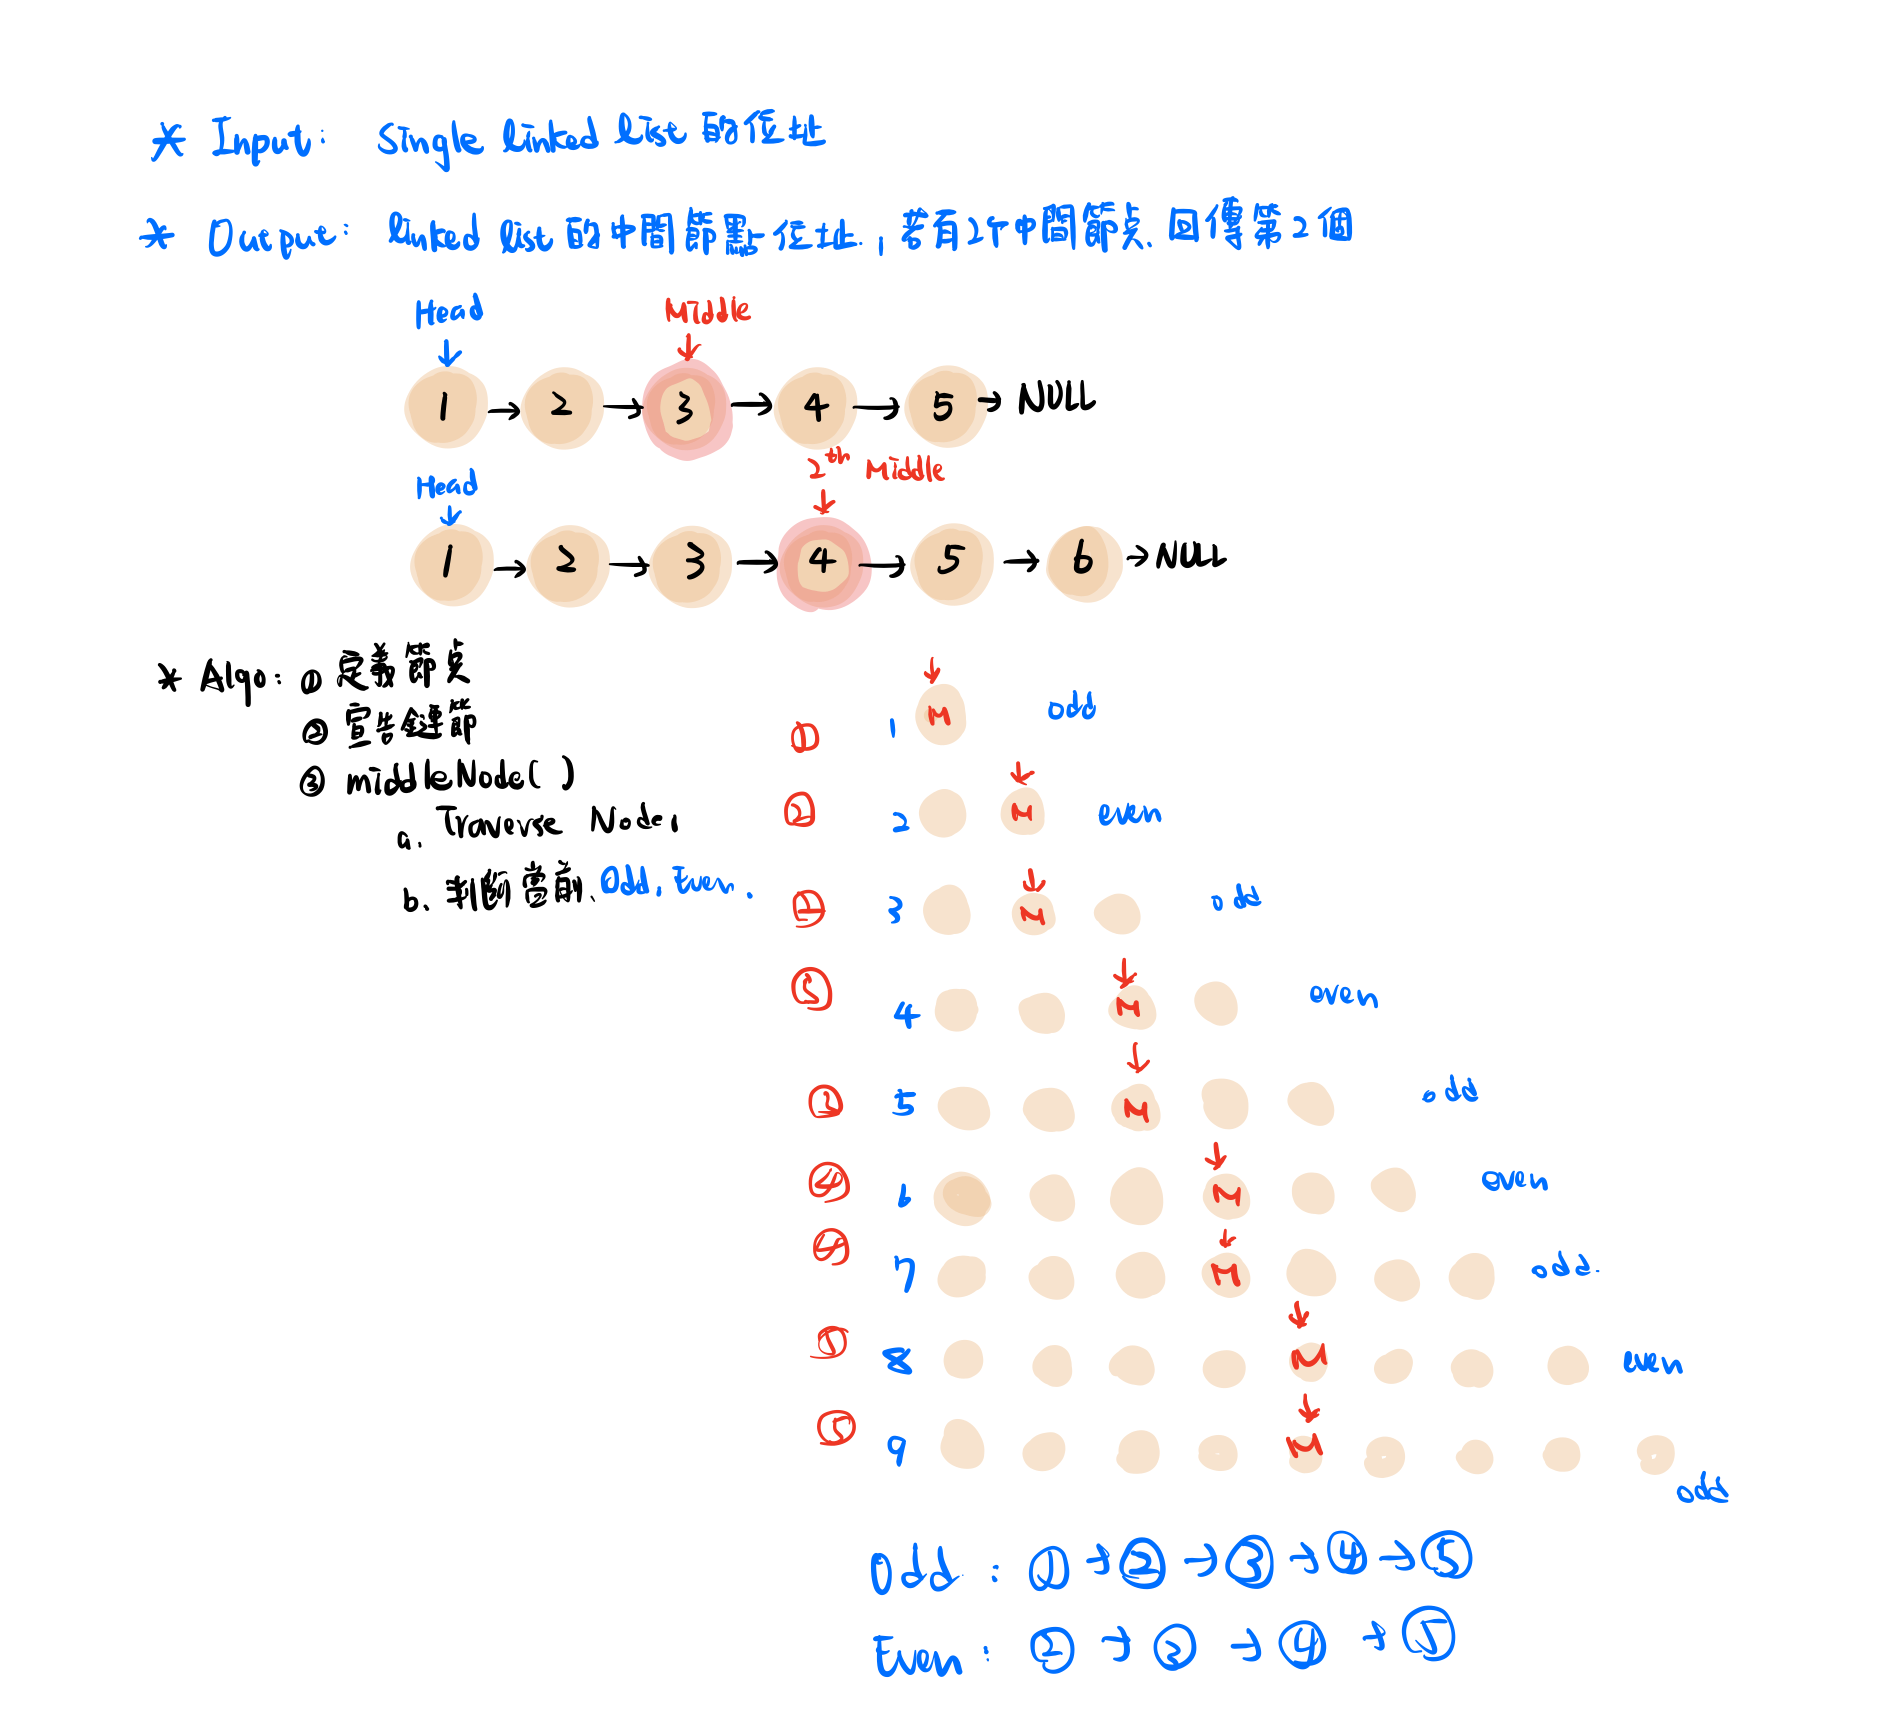 * Input: Single linked list 的位址
* Output: linked list 的中間節點位址,若有2个中間節点、回傳第2個
Head Middle
1 → 2 → 3 → 4 → 5 → NULL
Head 2th Middle
1 → 2 → 3 → 4 → 5 → 6 → NULL
* Algo: ① 定義節点
② 宣告鏈節
③ middleNode( )
a. Traverse Node,
b. 判斷當前、Odd, Even.
① 1 M odd
② 2 M even
② 3 M odd
③ 4 M even
③ 5 M odd
④ 6 M even
④ 7 M odd.
⑤ 8 M even
⑤ 9 M odd
Odd : ① → ② → ③ → ④ → ⑤
Even : ② → ③ → ④ → ⑤